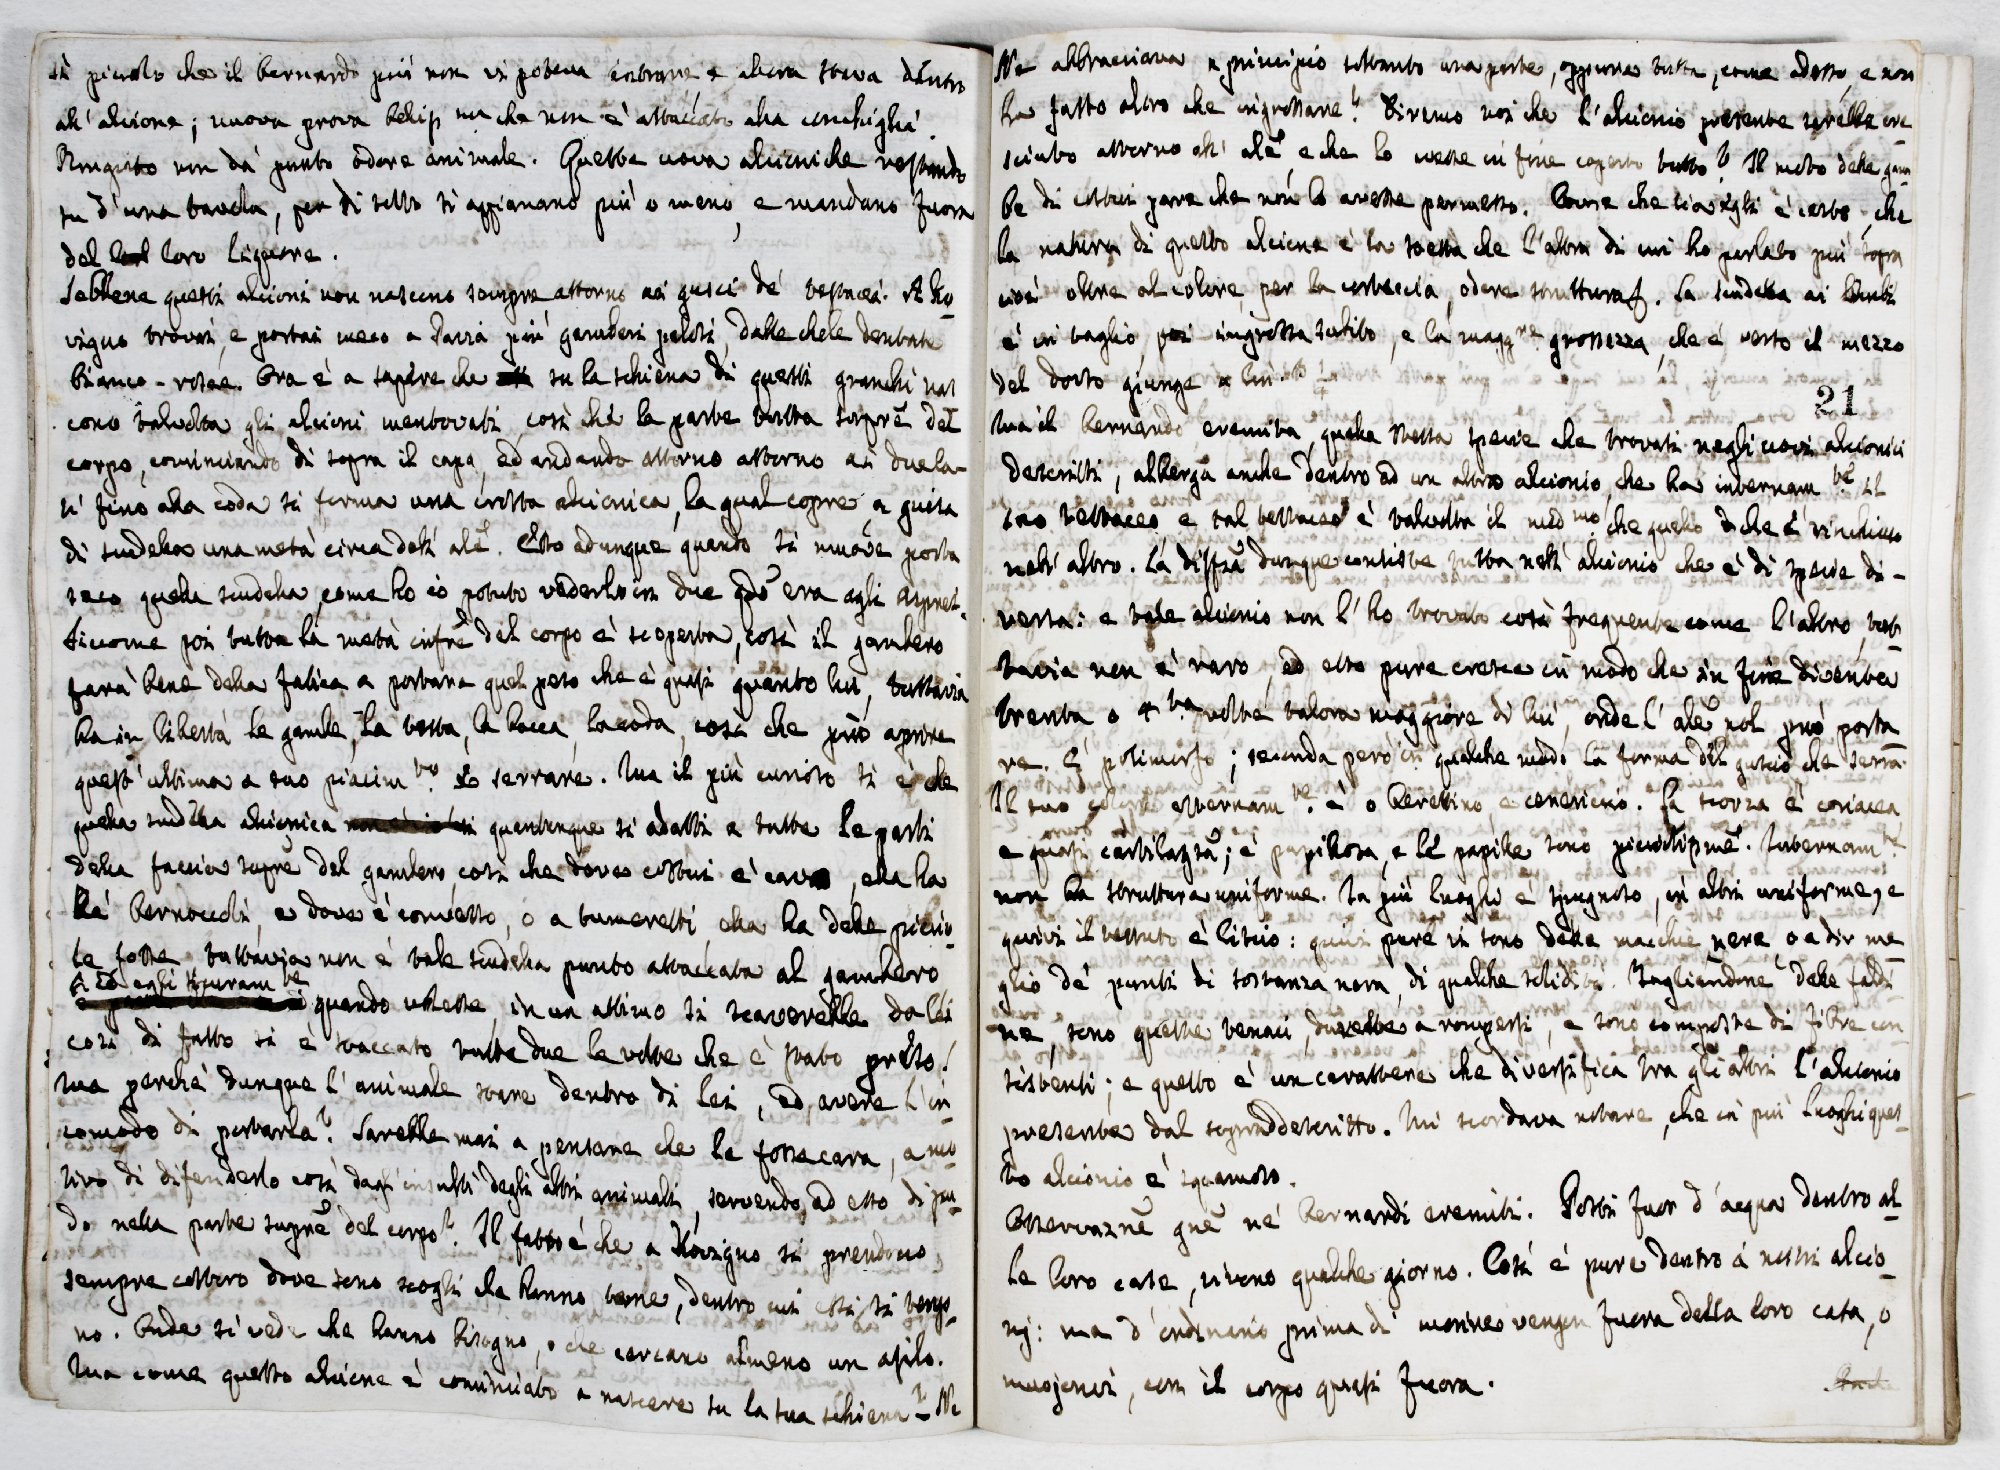 sì piccolo che il Bernardo più non vi poteva entrare e allora stava dentro
all' alcione; nuova prova che non è attaccato alla conchiglia.
Rasciugato non dà punto odore animale. Queste uova alcioniche restando
su d'una tavola, per di sotto si appianano più o meno, e mandano fuora
del loro liquore.
Sebbene questi alcioni non nascono sempre attorno ai gusci de' testacei. A Ro-
vigno trovai, e portai meco a Pavia più gamberi pelosi, dalle chele dentate
bianco-rosee. Ora è a sapere che su la schiena di questi granchi nas
cono talvolta gli alcioni mentovati, così che la parte tutta supre del
corpo, cominciando di sopra il capo, ed andando attorno attorno ai due la-
ti fino alla coda si forma una crosta alcionica, la qual copre a guisa
di scudella una metà circa dell' ale. Esso adunque quando si muove porta
seco quella scudella, come ho io potuto vederlo in due qdo era agli
Siccome poi tutta la metà infre del corpo è scoperta, così il gambero
farà bene della fatica a portare quel peso che è quasi quanto lui, tuttavia
ha in libertà le gambe, la testa, la bocca, la coda, così che può aprire
quest' ultima a suo piacimto o serrare. Ma il più curioso si è che
quella scudella alcionica quantunque si adatti a tutte le parti
della faccia supre del gambero, così che dove costui è cavo, ella ha
bernoccoli, e dove è convesso, o a tumoretti, ella ha delle picciо-
le fosse, tuttavia non è tale scudella punto attaccata al gambero
Ed egli sicuramte
quando volesse, in un attimo si scaverebbe da lei
così di fatto si è staccato tutte due le volte che è stato preso!
Ma perchè dunque l'animale stare dentro di lei, ed avere l'in-
comodo di portarla? Sarebbe mai a pensare che le fosse cara, a mo-
tivo di difenderlo così dagl'insulti degli altri animali, servendo ad esso di scu-
do nella parte supre del corpo? Il fatto è che a Rovigno si prendono
sempre costoro dove sono scogli che hanno tane, dentro cui essi si tengo-
no. Onde si vede che hanno bisogno, o che cercano almeno un asilo.
Ma come questo alcione è cominciato a nascere su la sua schiena? Ne
Ne abbracciava a principio soltanto una parte, oppure tutta, come adesso, e non
ha fatto altro che ingrossare? Diremo noi che l'alcionio presente sarebbe cre
sciuto attorno all' ale e che lo avesse in fine coperto tutto? Il moto delle gam
be di costui pare che non lo avesse permesso. Come che siasi egli è certo che
la natura di questo alcione è la stessa che l'altra di cui ho parlato più sopra
così oltre al colore, per la corteccia, odore struttura. La scudella ai lembi
è in taglio, poi ingrossa subito, e la maggre grossezza, che è verso il mezzo
del dorso giunge a lin.
21
Ma il Bernardo eremita, quella stessa specie che trovasi negli uovi alcionici
descritti, alberga anche dentro ad un altro alcionio, che ha internamte il
suo testaceo, e tal testaceo è talvolta il medmo che quello che è rinchiuso
nell' altro. La diffza dunque consiste tutta nell' alcionio che è di specie di-
versa: e tale alcionio non l'ho trovato così frequente come l'altro, tut-
tavia non è raro, ed esso pure cresce in modo che in fine diventa
trenta o 4ta volte talora maggiore di lui, onde l'ale nol può porta
re. È polimorfo; seconda però in qualche modo la forma del guscio che serra.
Il suo colore esternamte è o berettino, o cenericcio. La scorza è coriacea
e quasi cartilagza; è papillosa, e le papille sono picciolissme. Internamte
non ha struttura uniforme. In più luoghi è spugnoso, in altri uniforme, e
quivi il tessuto è liscio: quivi pure vi sono delle macchie nere, o a dir me
glio de' punti di sostanza nera, di qualche solidità. Tagliandone delle faldi
ne, sono queste tenaci, durette a rompersi, e sono composte di fibre con
sistenti; e questo è un carattere che diversifica tra gli altri l'alcionio
presente dal sopraddescritto. Mi scordava notare, che in più luoghi ques-
to alcionio è squamoso.
Osservazne gnle ne' Bernardi eremiti. Posti fuor d'acqua dentro al-
le loro case, vivono qualche giorno. Così è pure dentro a nostri alcio-
nj: ma d'ordinario prima di morire vengon fuora della loro casa, o
muojonvi, con il corpo quasi fuora.